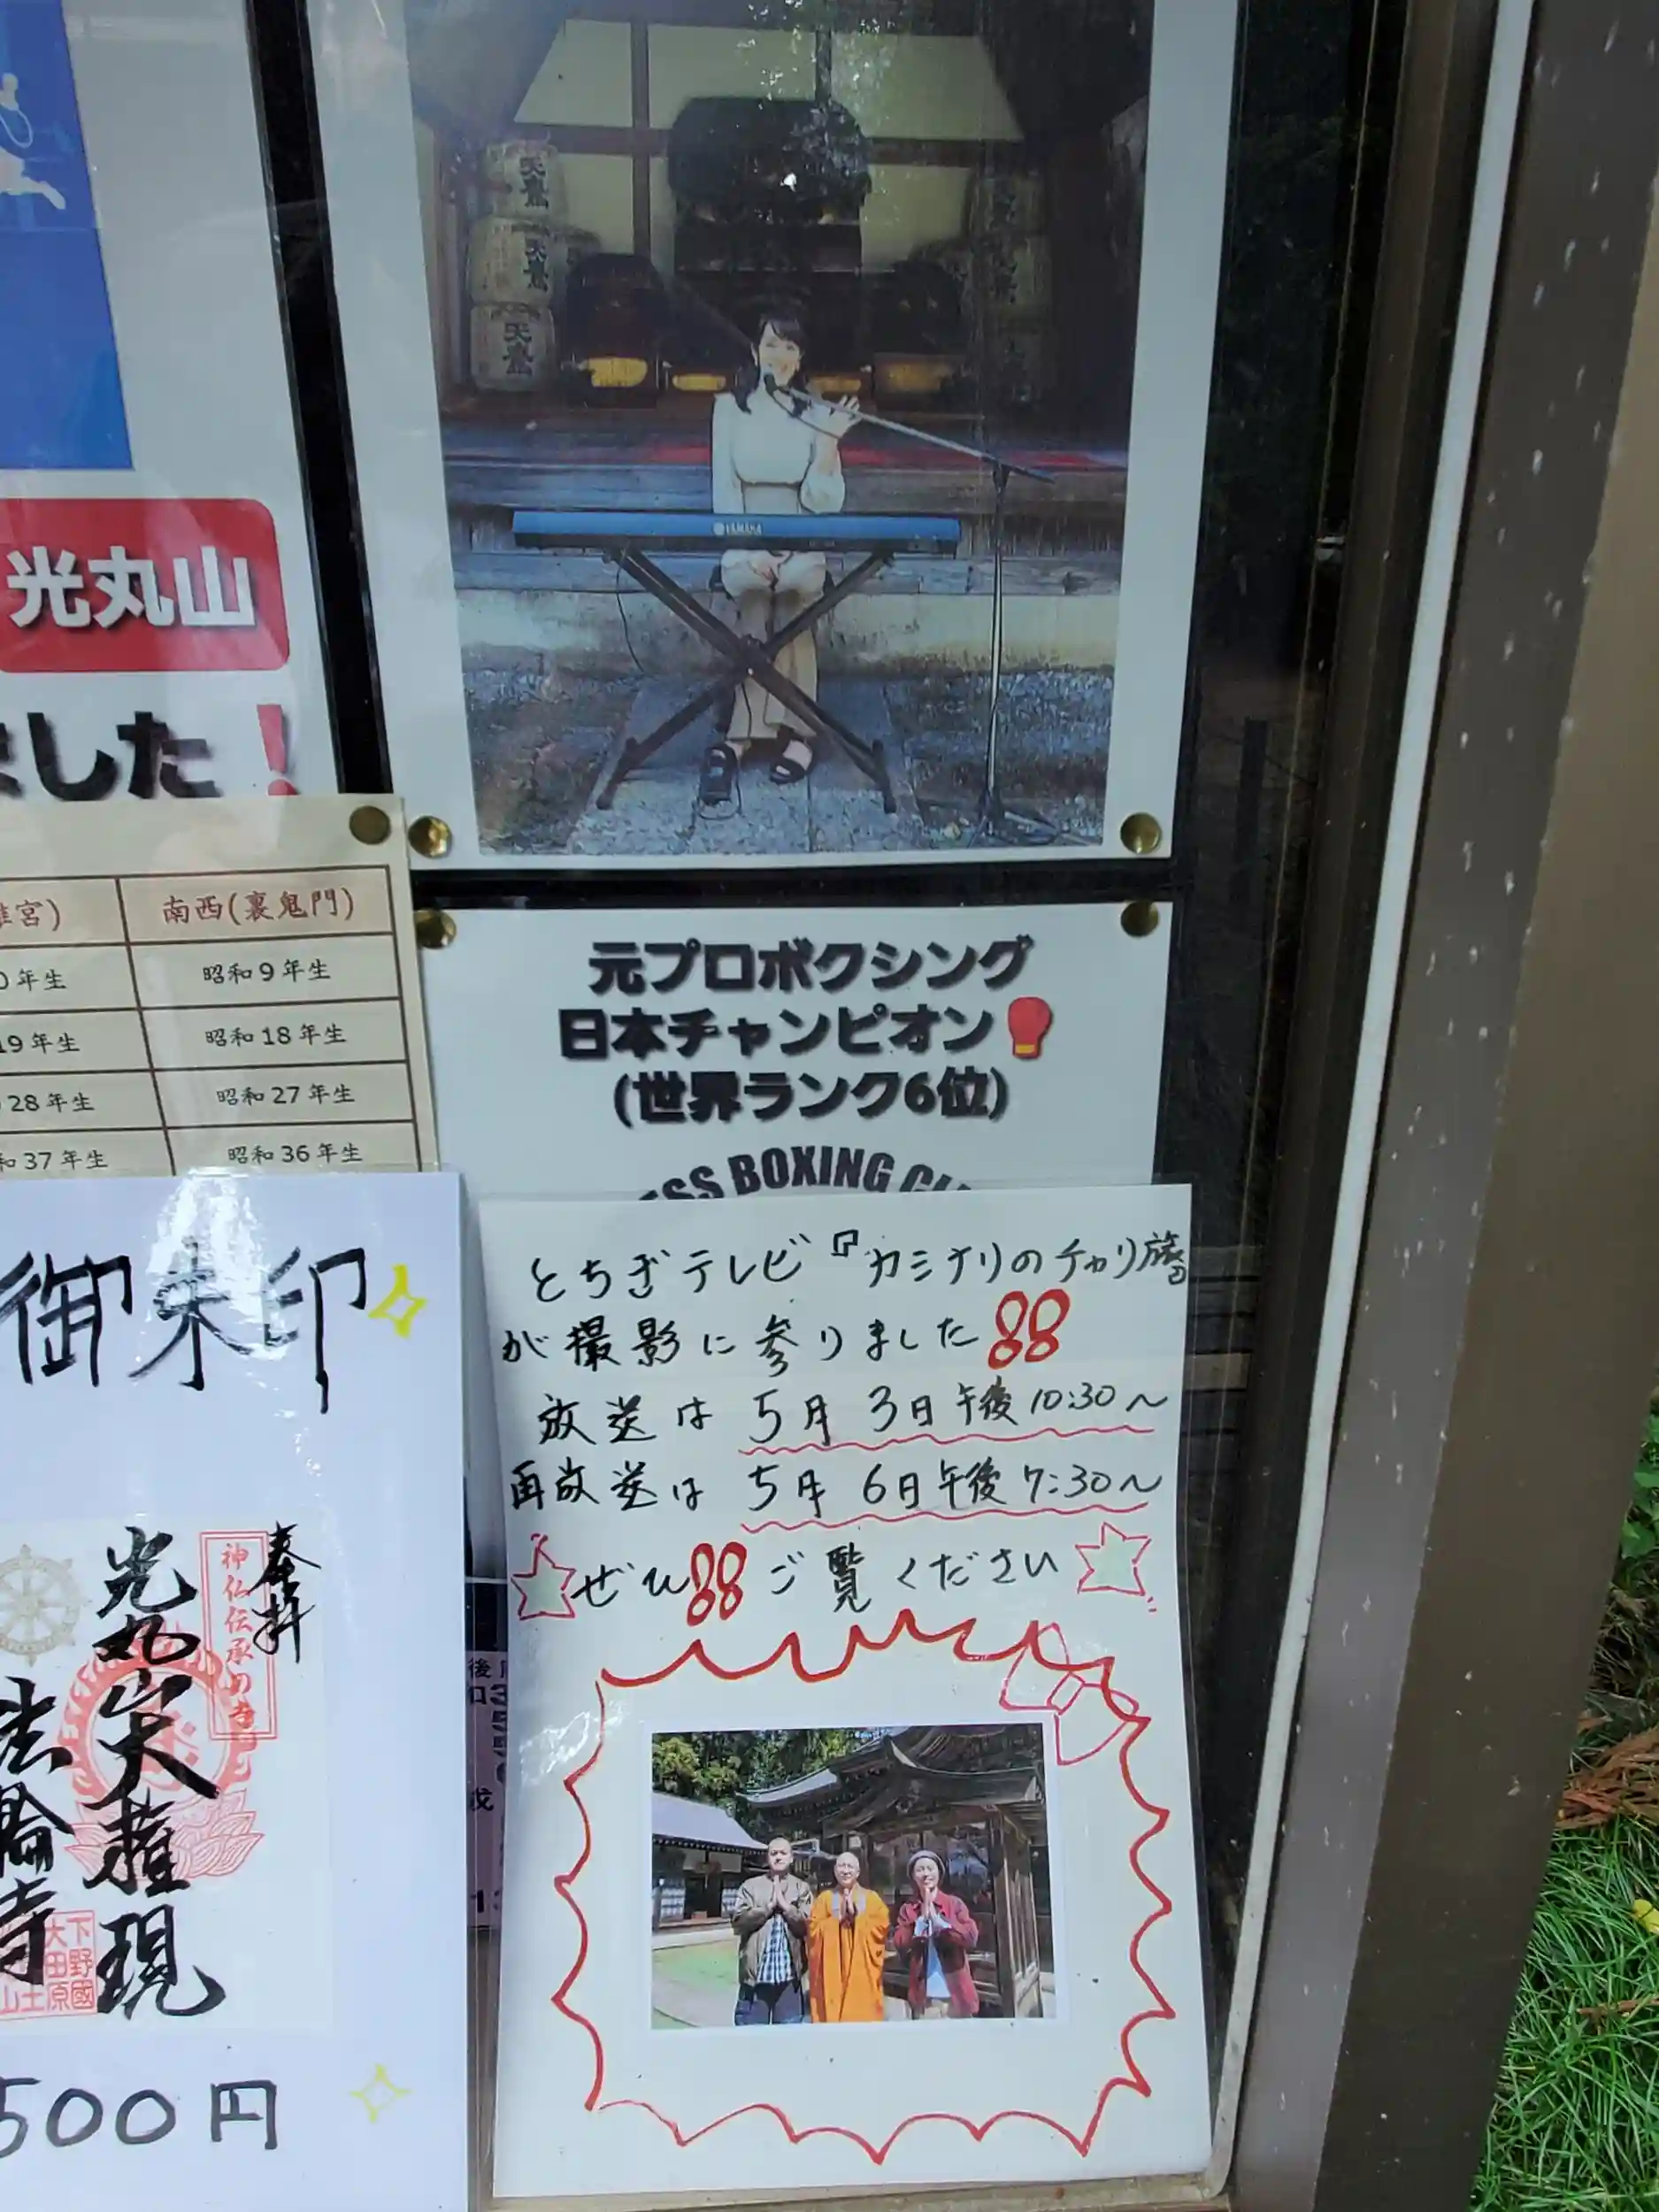 天鷹
天鷹
天鷹
YAMAHA
光丸山
ました！
宮)
南西(裏鬼門)
年生
昭和9年生
19年生
昭和18年生
28年生
昭和27年生
37年生
昭和36年生
元プロボクシング
日本チャンピオン
(世界ランク6位)
ESS BOXING
とちぎテレビ『カミナリのチャリ旅』
が撮影に参りました!!
放送は 5月 3日午後10:30〜
再放送は 5月 6日午後7:30〜
ぜひ!!ご覧ください
御朱印
奉拝
神仏伝承の寺
光丸山大権現
法輪寺
下野國
大田原
500円